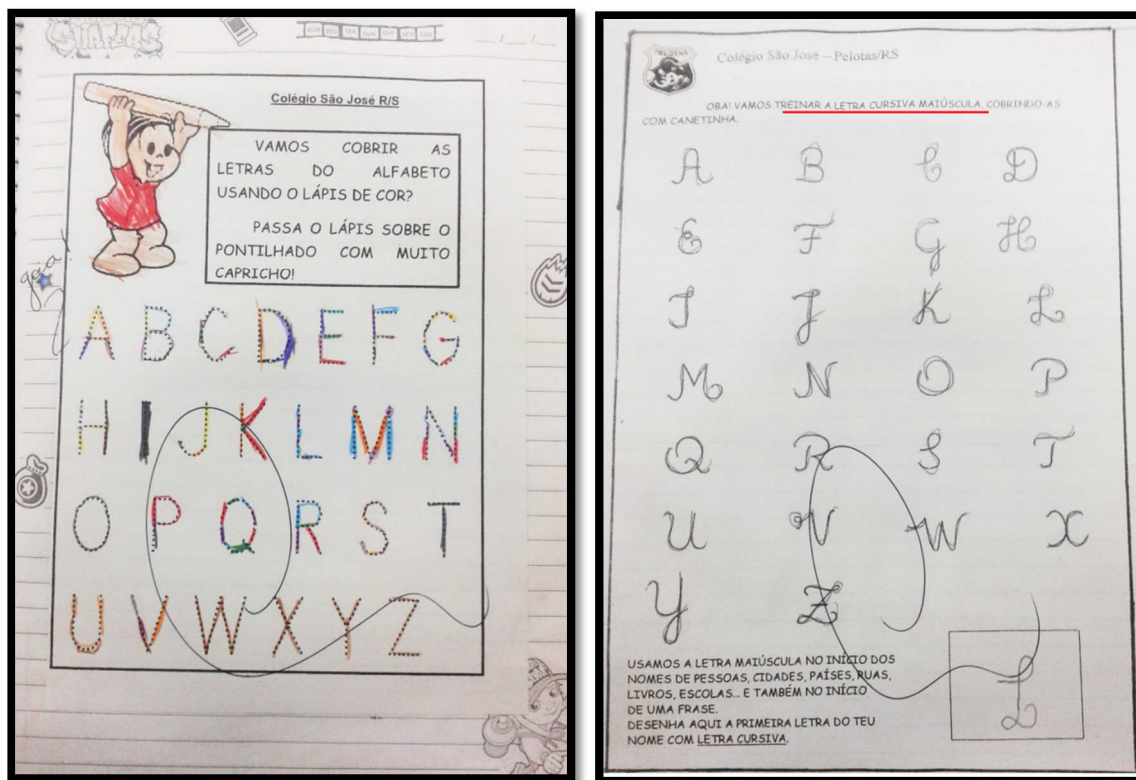 Colégio São José R/S
VAMOS COBRIR AS
LETRAS DO ALFABETO
USANDO O LÁPIS DE COR?
PASSA O LÁPIS SOBRE O
PONTILHADO COM MUITO
CAPRICHO!
A B C D E F G
H I J K L M N
O P Q R S T
U V W X Y Z
Colégio São José – Pelotas/RS
OBA! VAMOS TREINAR A LETRA CURSIVA MAIÚSCULA, COBRINDO-AS
COM CANETINHA.
A B C D
E F G H
I J K L
M N O P
Q R S T
U V W X
Y Z
USAMOS A LETRA MAIÚSCULA NO INÍCIO DOS
NOMES DE PESSOAS, CIDADES, PAÍSES, RUAS,
LIVROS, ESCOLAS... E TAMBÉM NO INÍCIO
DE UMA FRASE.
DESENHA AQUI A PRIMEIRA LETRA DO TEU
NOME COM LETRA CURSIVA.
L